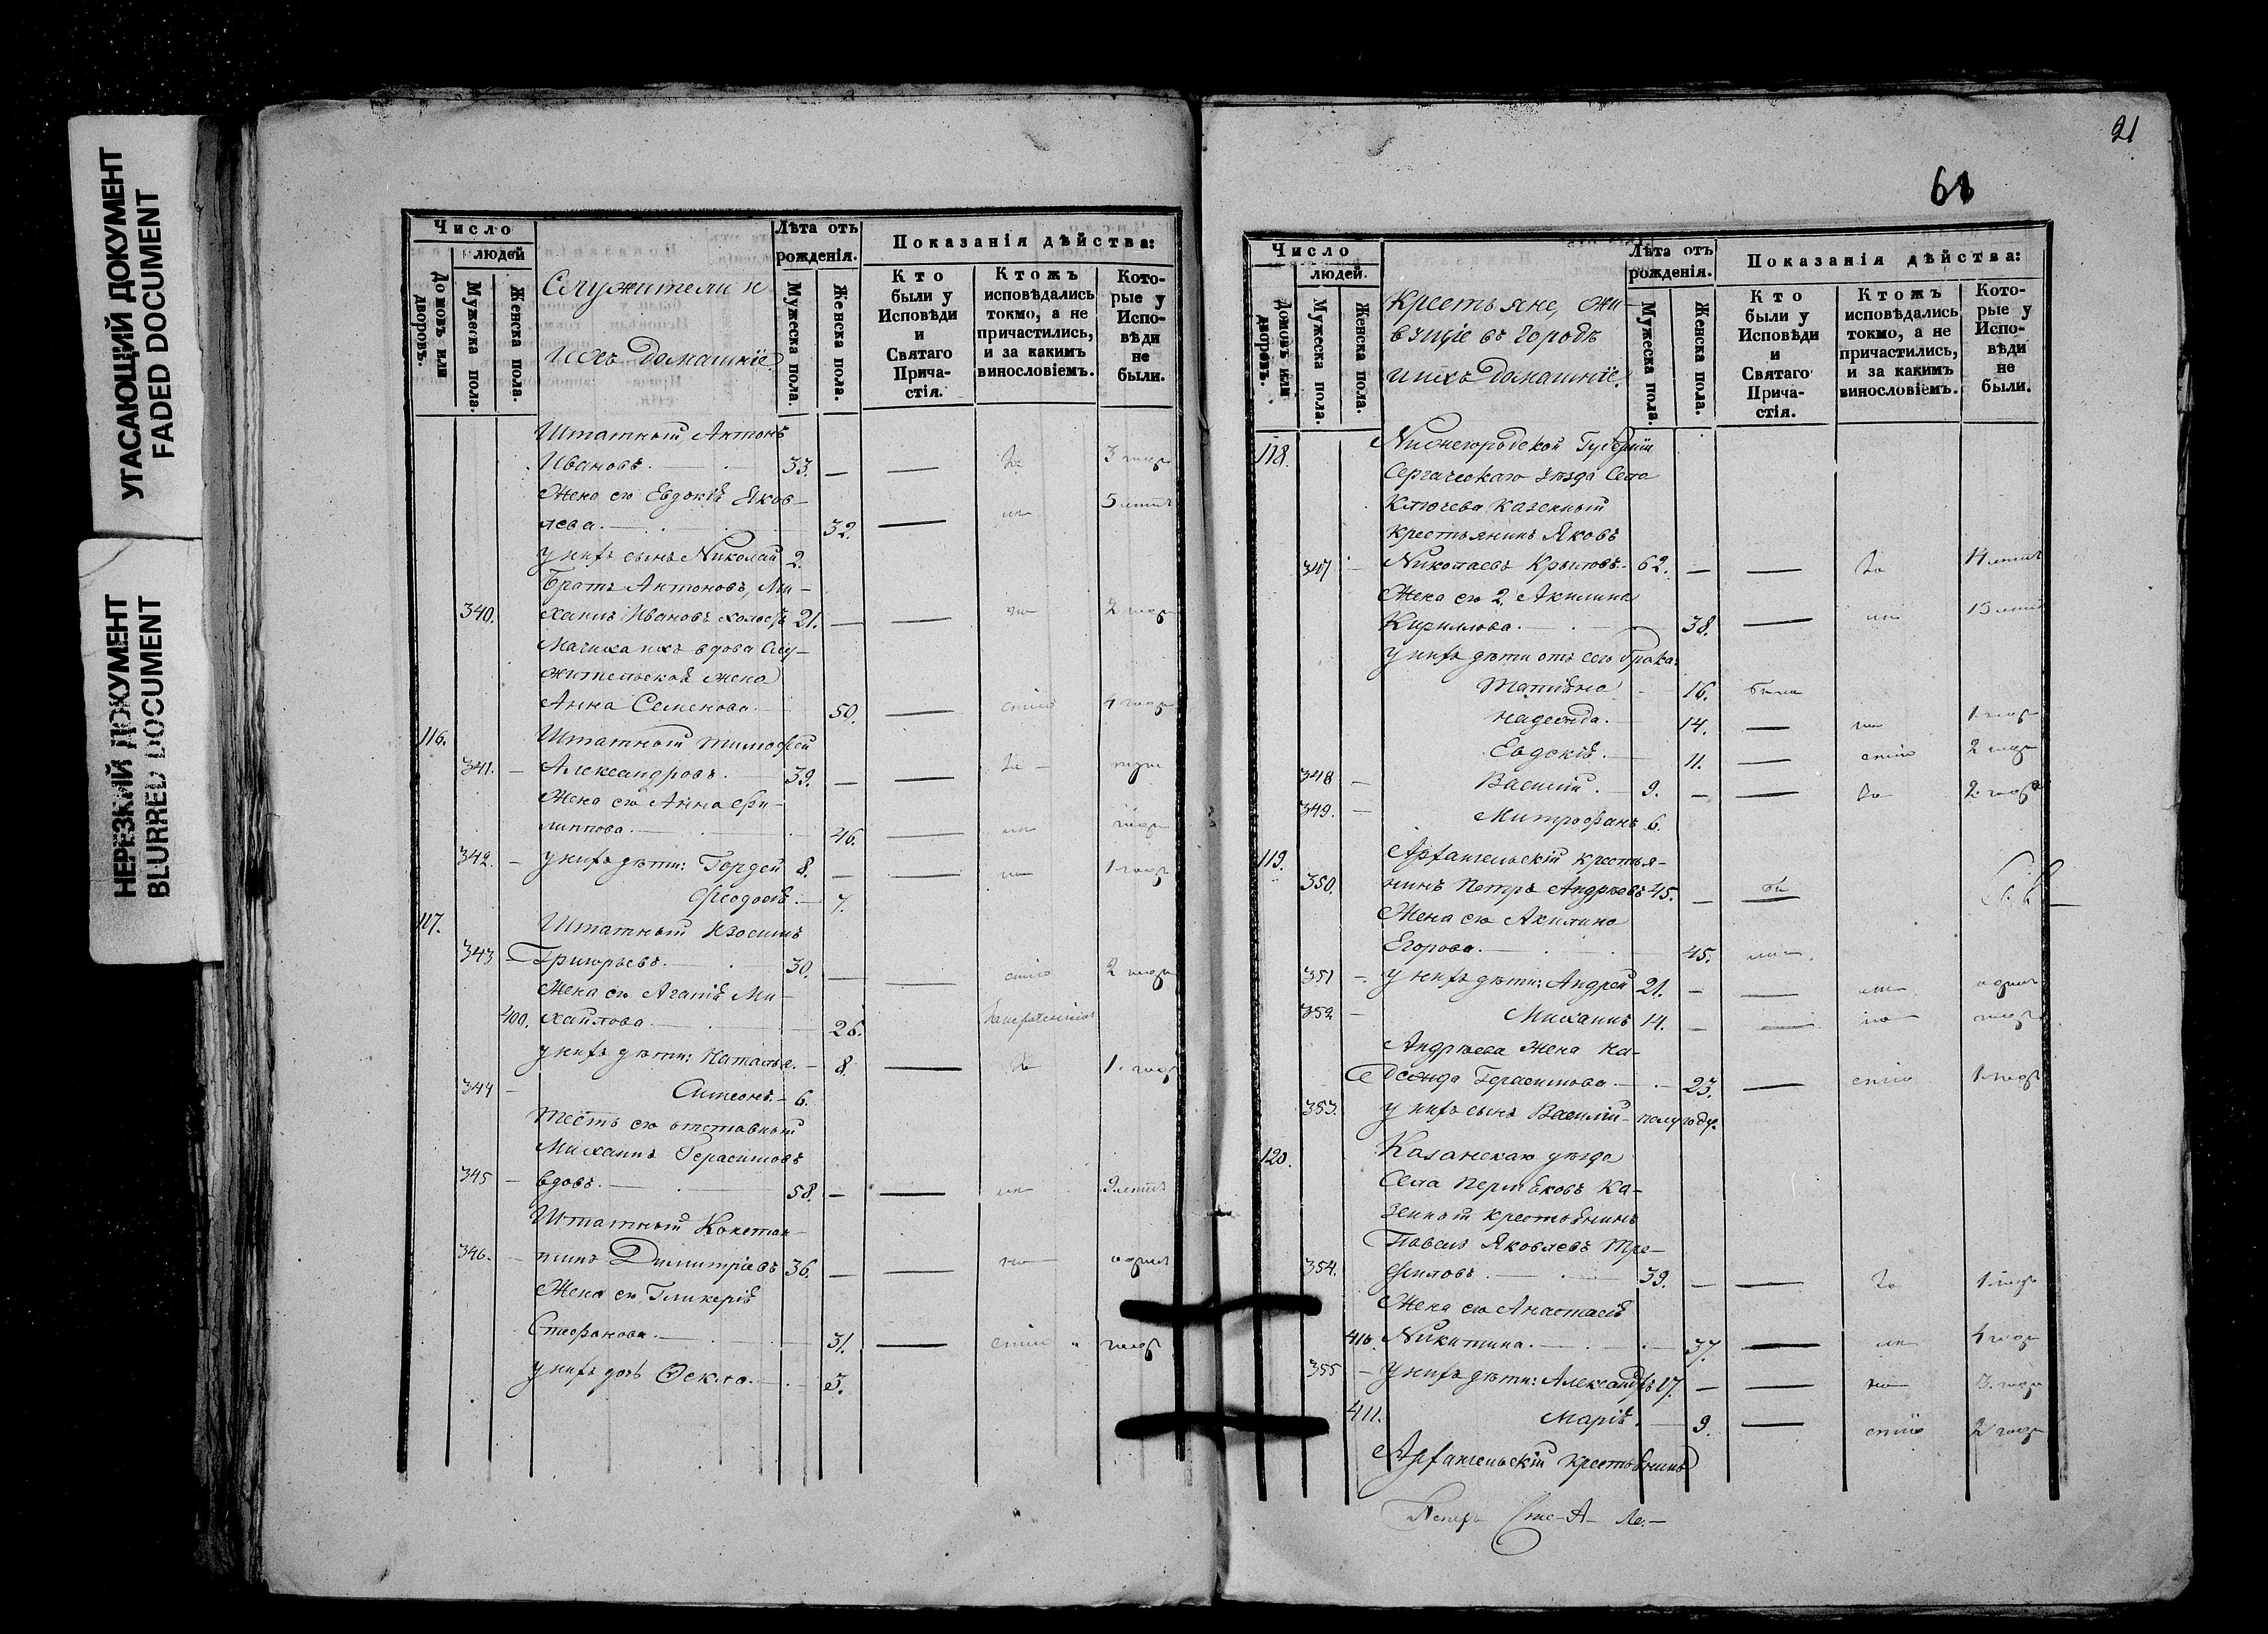 УГАСАЮЩИЙ ДОКУМЕНТ
FADED DOCUMENT
НЕРЕЗКИЙ ДОКУМЕНТ
BLURRED DOCUMENT
Число
людей
Домовъ или дворовъ.
Мужеска пола.
Женска пола.
Служители и
ихъ домашніе
Лѣта отъ рожденія.
Мужеска пола.
Женска пола.
Показанія дѣйства:
Кто были у Исповѣди и Святаго Причастія.
Ктожъ исповѣдались токмо, а не причастились, и за какимъ винословіемъ.
Которые у Исповѣди не были.
Штатный Антонъ
Ивановъ. 33. — — 3 года
Жена его Евдокія Яков-
лева. 32. — 5 лѣтъ
у нихъ сынъ Николай 2.
Братъ Антоновъ, Ми-
340. хаилъ Ивановъ холостъ 21. — — 2 года
Мачиха ихъ вдова слу-
жительская жена
Анна Семенова. 50. — сmiю 4 года
116. Штатный Тимофей
341. — Александровъ. 39. — —
Жена его Анна Фи-
липпова. 46. —
342. — у нихъ дѣти: Гордей 8. — — 1 годъ
Феодосія — 7.
117. Штатный Изосимъ
343 — Григорьевъ. 30. — — 2 года
Жена его Агапія Ми-
400. хайлова. 26.
у нихъ дѣти: Наталья. — 8. — 1. годъ
344 — Симеонъ. — 6.
Тесть его отставный
Михаилъ Герасимовъ
345 — вдовъ. 58. — — 9 лѣтъ
Штатный Констан-
346. — тинъ Димитріевъ 36. — —
Жена его Гликерія
Стефанова. 31. —
у нихъ дочь Фекла. 3.
21
68
Число
людей.
Домовъ или дворовъ.
Мужеска пола.
Женска пола.
Крестьяне, жи-
вущіе въ городѣ
и ихъ домашніе.
Лѣта отъ рожденія.
Мужеска пола.
Женска пола.
Показанія дѣйства:
Кто были у Исповѣди и Святаго Причастія.
Ктожъ исповѣдались токмо, а не причастились, и за какимъ винословіемъ.
Которые у Исповѣди не были.
118. Нижегородской Губерніи
Сергачскаго уѣзда Села
Ключева казенный
крестьянинъ Яковъ
347 — Николаевъ Крыловъ. 62. — — 14 лѣтъ
Жена его 2. Акилина
Кириллова. 38. — 13 лѣтъ
у нихъ дѣти отъ сего брака:
Татіана 16. была
Надежда. 14. — 1 годъ
Евдокія. 11. — 2 года
348 — Василій. 9. — — 2 года
349. — Митрофанъ 6.
119. Архангельскій крестья-
350. нинъ Петръ Андреевъ 45. —
Жена его Акилина
Егорова. 45.
351 — у нихъ дѣти: Андрей 21. — —
352 — Михаилъ 14. — —
Андреева жена На-
дежда Герасимова. 23. — 1 годъ
353. у нихъ сынъ Василій — полугоду.
120. Казанскаго уѣзда
Села Пермяковъ ка-
зенный крестьянинъ
Павелъ Яковлевъ Тре-
354. филовъ. 39. — — 1 годъ
Жена его Анастасія
410. Никитина. 37. — 4 года
355 — у нихъ дѣти: Александръ 17. — — 3. года
411. Марія. 9. — 2 года
Архангельскій крестьянинъ